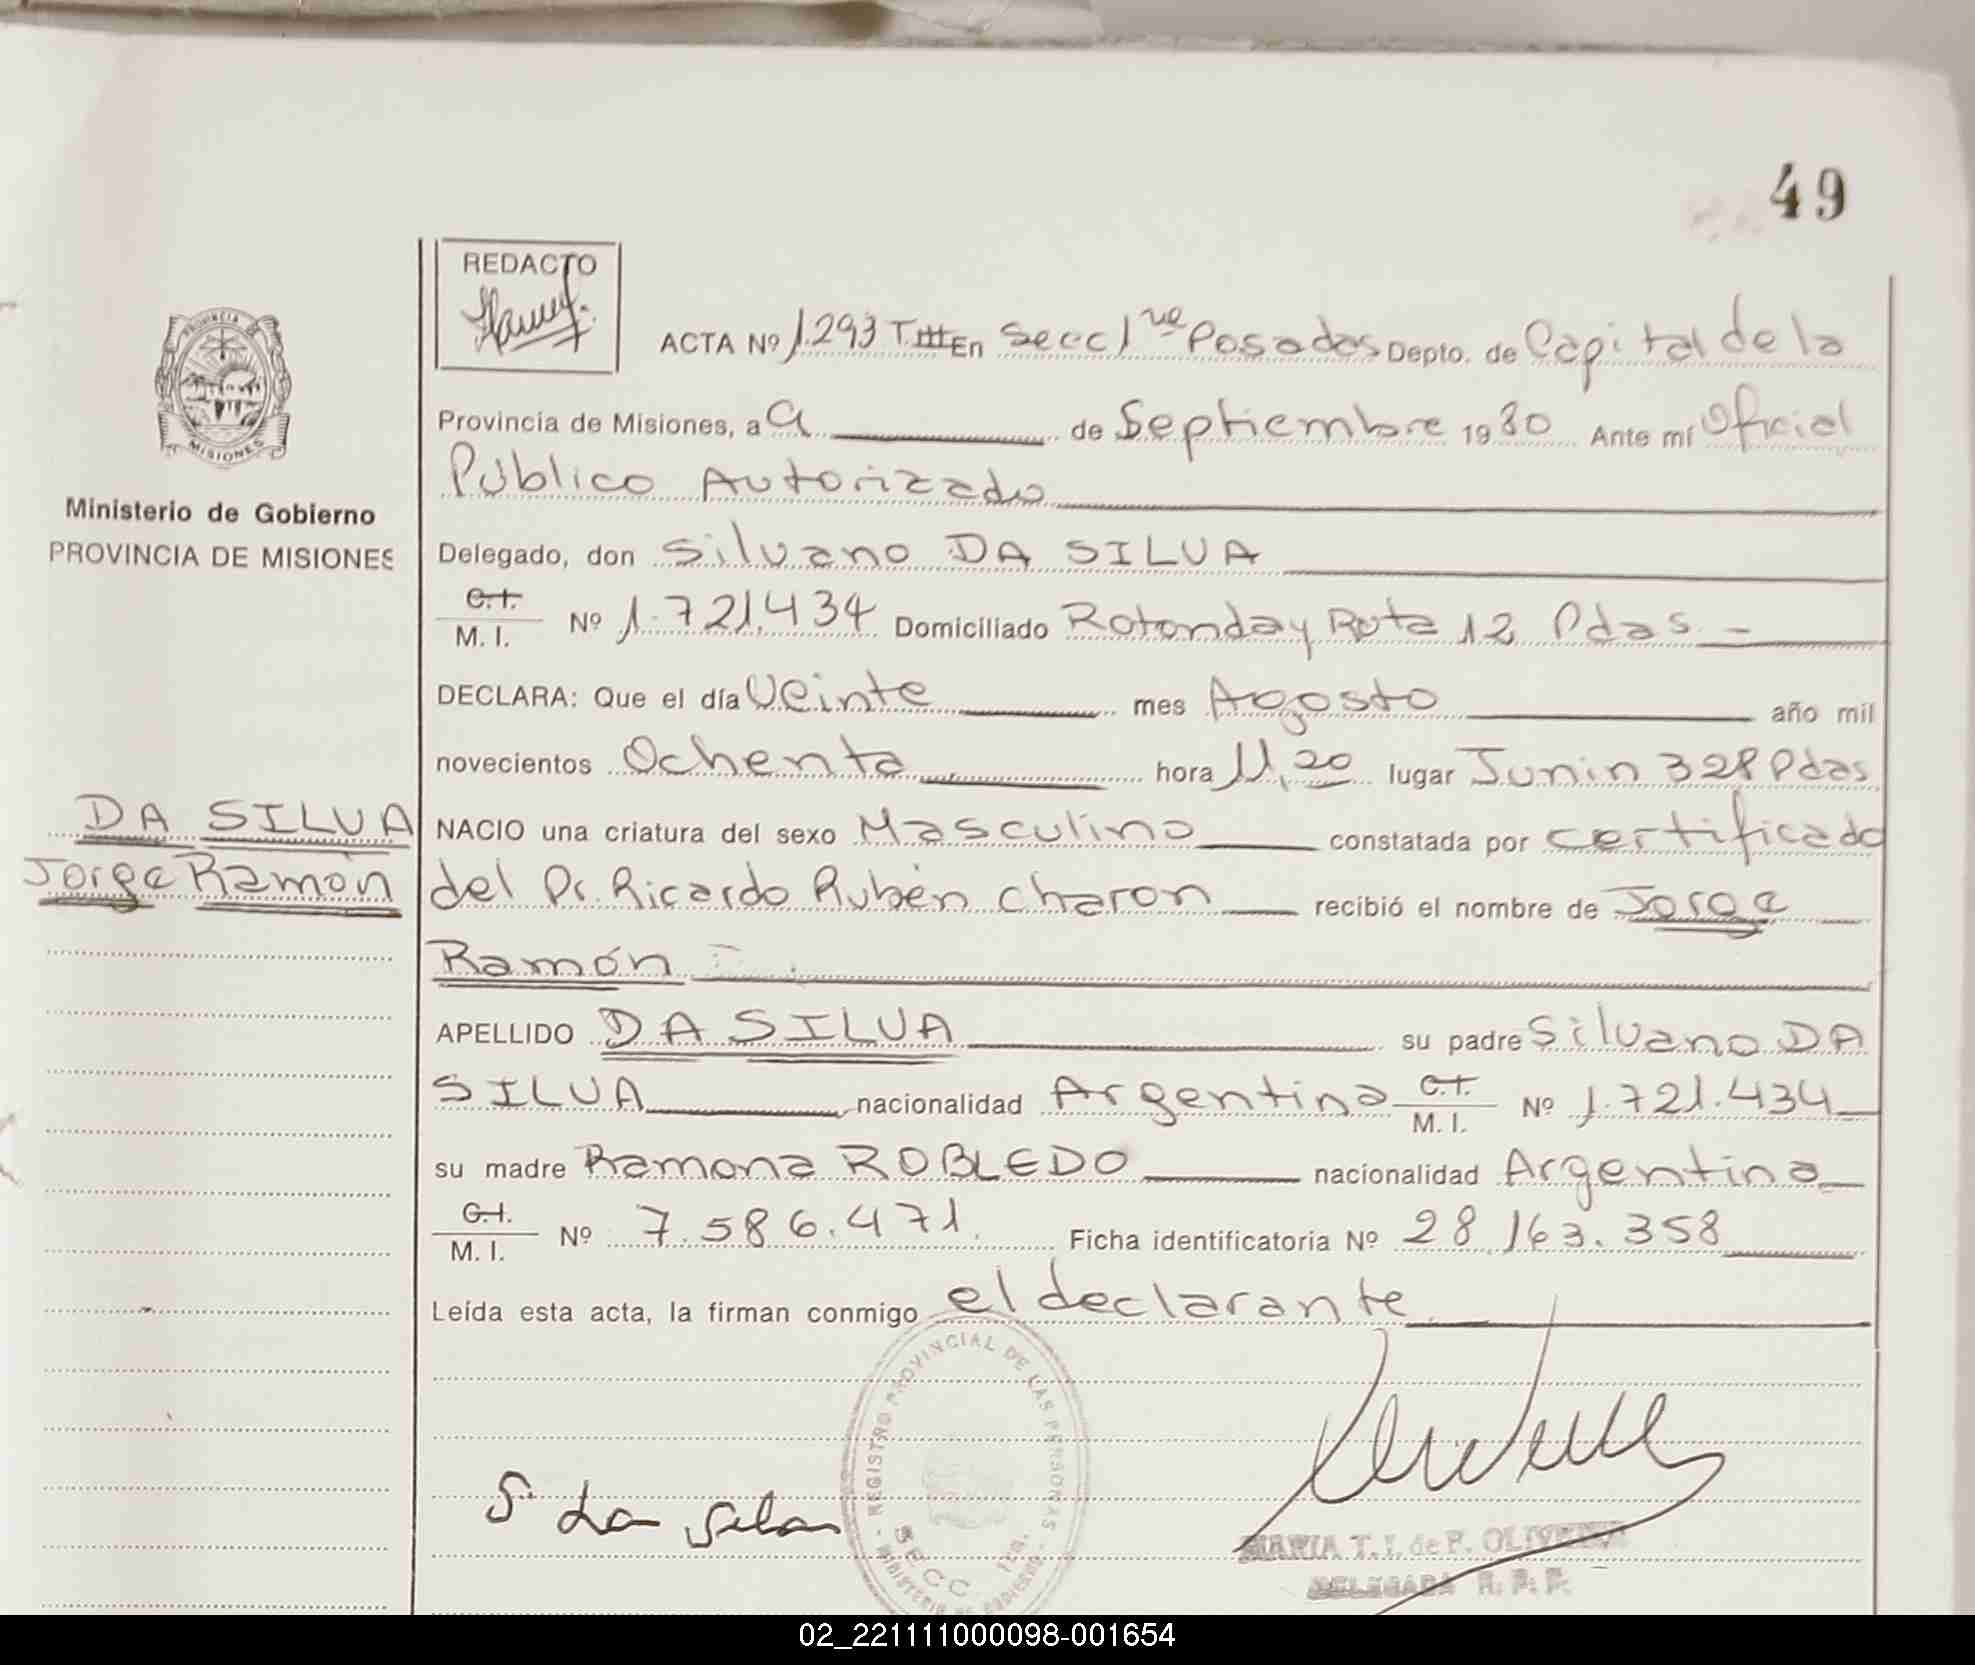 49
REDACTO
ACTA Nº 1.293 T. III En Secc 1ra Posadas Depto. de Capital de la
PROVINCIA DE MISIONES
Provincia de Misiones, a 9 de Septiembre 1980 Ante mí Oficial
Público Autorizado
Ministerio de Gobierno
PROVINCIA DE MISIONES
Delegado, don Silvano DA SILVA
C.I.
M. I. Nº 1.721.434 Domiciliado Rotonda y Ruta 12 Pdas.-
DECLARA: Que el día Veinte mes Agosto año mil
novecientos Ochenta hora 11,20 lugar Junin 328 Pdas
DA SILVA
NACIO una criatura del sexo Masculino constatada por certificado
Jorge Ramón
del Dr. Ricardo Rubén Charon recibió el nombre de Jorge
Ramón
APELLIDO DA SILVA su padre Silvano DA
SILVA nacionalidad Argentina C.I. M. I. Nº 1.721.434
su madre Ramona ROBLEDO nacionalidad Argentina
C.I.
M. I. Nº 7.586.471. Ficha identificatoria Nº 28.163.358
Leída esta acta, la firman conmigo el declarante
REGISTRO PROVINCIAL DE LAS PERSONAS
MINISTERIO DE GOBIERNO
SECC 1ra.
S. da Silva
MARIA T. I. de P. OLIVEIRA
DELEGADA R. P. P.
02_221111000098-001654